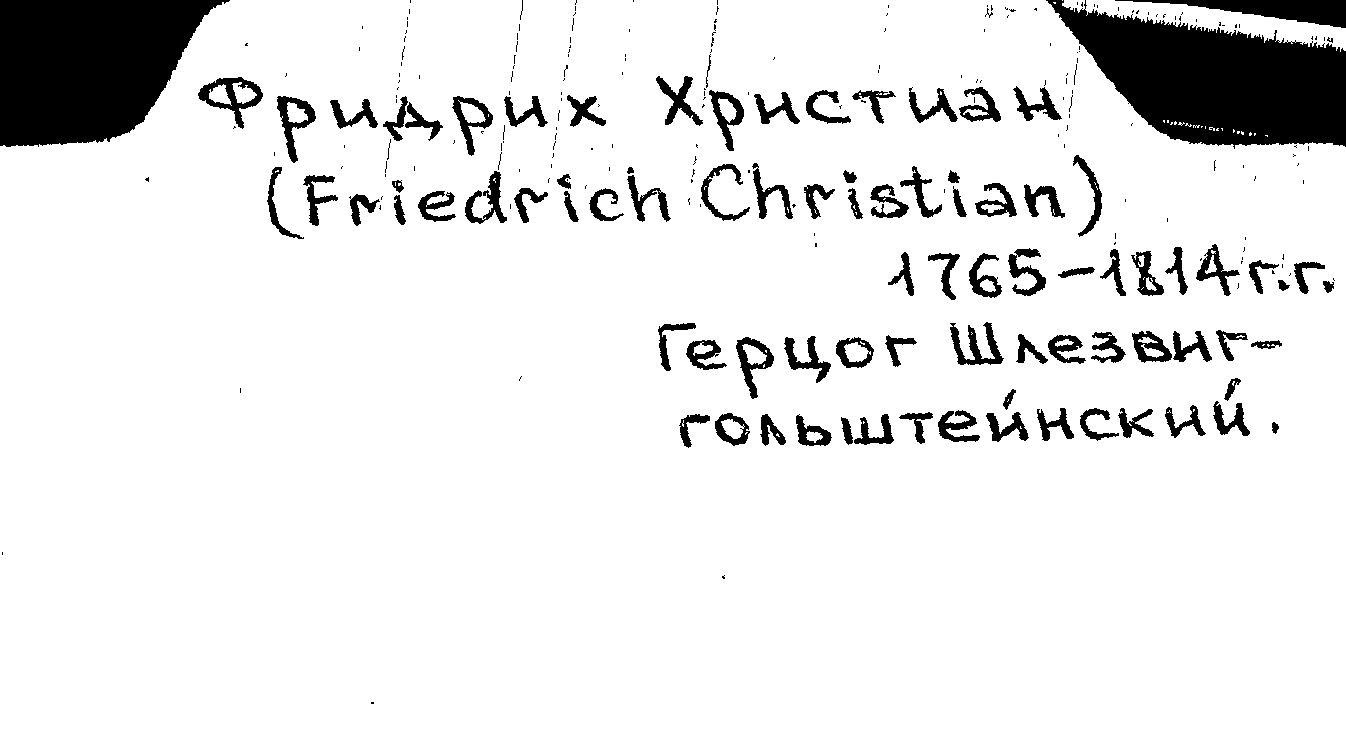 Фридрих Христиан
(Friedrich Christian)
1765-1814 г.г.
Герцог Шлезвиг-
гольштейнский.